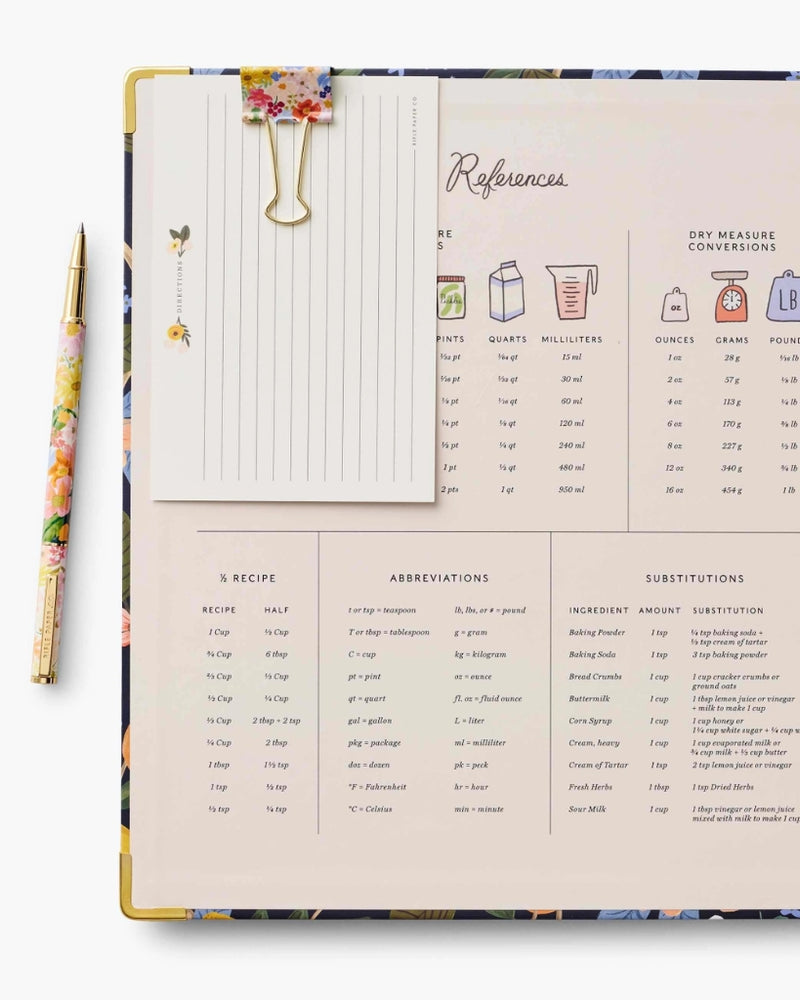 RIFLE PAPER CO.
DIRECTIONS
RIFLE PAPER CO.
References
RE
S
PINTS QUARTS MILLILITERS
1/32 pt 1/64 qt 15 ml
1/16 pt 1/32 qt 30 ml
1/8 pt 1/16 qt 60 ml
1/4 pt 1/8 qt 120 ml
1/2 pt 1/4 qt 240 ml
1 pt 1/2 qt 480 ml
2 pts 1 qt 950 ml
DRY MEASURE
CONVERSIONS
oz
LB
OUNCES GRAMS POUND
1 oz 28 g 1/16 lb
2 oz 57 g 1/8 lb
4 oz 113 g 1/4 lb
6 oz 170 g 3/8 lb
8 oz 227 g 1/2 lb
12 oz 340 g 3/4 lb
16 oz 454 g 1 lb
½ RECIPE
RECIPE HALF
1 Cup ½ Cup
¾ Cup 6 tbsp
⅔ Cup ⅓ Cup
½ Cup ¼ Cup
⅓ Cup 2 tbsp + 2 tsp
¼ Cup 2 tbsp
1 tbsp 1½ tsp
1 tsp ½ tsp
½ tsp ¼ tsp
ABBREVIATIONS
t or tsp = teaspoon lb, lbs, or # = pound
T or tbsp = tablespoon g = gram
C = cup kg = kilogram
pt = pint oz = ounce
qt = quart fl. oz = fluid ounce
gal = gallon L = liter
pkg = package ml = milliliter
doz = dozen pk = peck
°F = Fahrenheit hr = hour
°C = Celsius min = minute
SUBSTITUTIONS
INGREDIENT AMOUNT SUBSTITUTION
Baking Powder 1 tsp ¼ tsp baking soda +
½ tsp cream of tartar
Baking Soda 1 tsp 3 tsp baking powder
Bread Crumbs 1 cup 1 cup cracker crumbs or
ground oats
Buttermilk 1 cup 1 tbsp lemon juice or vinegar
+ milk to make 1 cup
Corn Syrup 1 cup 1 cup honey or
1¼ cup white sugar + ¼ cup w
Cream, heavy 1 cup 1 cup evaporated milk or
¾ cup milk + ⅓ cup butter
Cream of Tartar 1 tsp 2 tsp lemon juice or vinegar
Fresh Herbs 1 tbsp 1 tsp Dried Herbs
Sour Milk 1 cup 1 tbsp vinegar or lemon juice
mixed with milk to make 1 cup